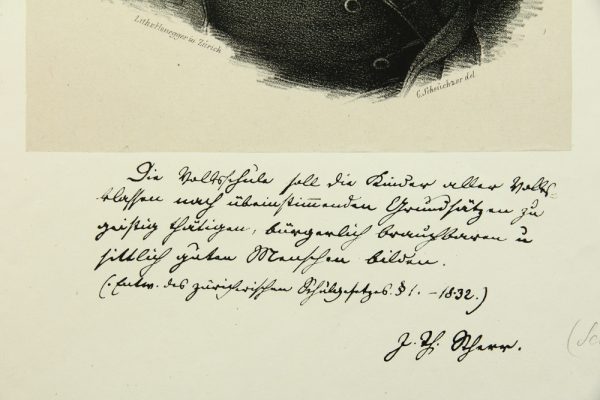 Lith. v. Honegger in Zürich
C. Scheuchzer del
Die Volksschule soll die Kinder aller Volks-
klassen nach übeinstimmenden Grundsätzen zu
geistig thätigen, bürgerlich brauchbaren u
sittlich guten Menschen bilden.
(. Entw. des zürcherischen Schulgesetzes. § 1. – 1832.)
J. Th. Scherr.
(Sc